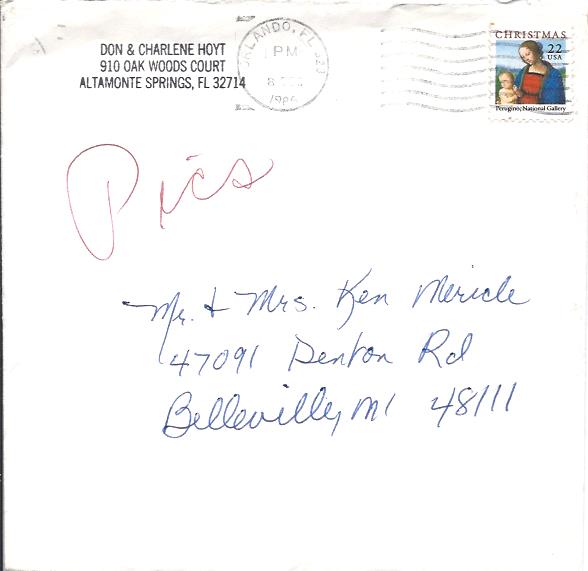 DON & CHARLENE HOYT
910 OAK WOODS COURT
ALTAMONTE SPRINGS, FL 32714
ORLANDO, FL
PM
8
1986
CHRISTMAS
22
USA
Perugino, National Gallery
Pics
Mr. & Mrs. Ken Mericle
47091 Denton Rd
Belleville, MI 48111